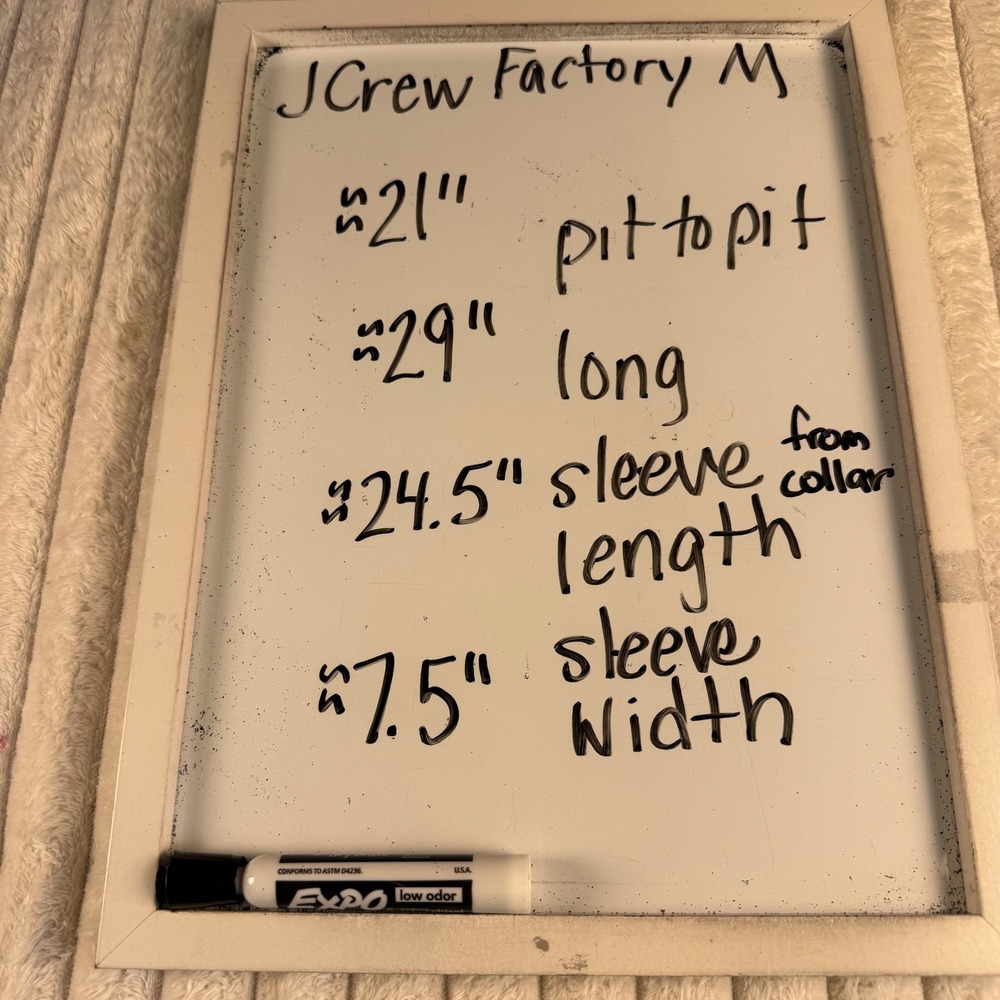 JCrew Factory M
≈21" pit to pit
≈29" long
≈24.5" sleeve from
collar
length
≈7.5" sleeve
width
CONFORMS TO ASTM D4236. U.S.A.
EXPO low odor